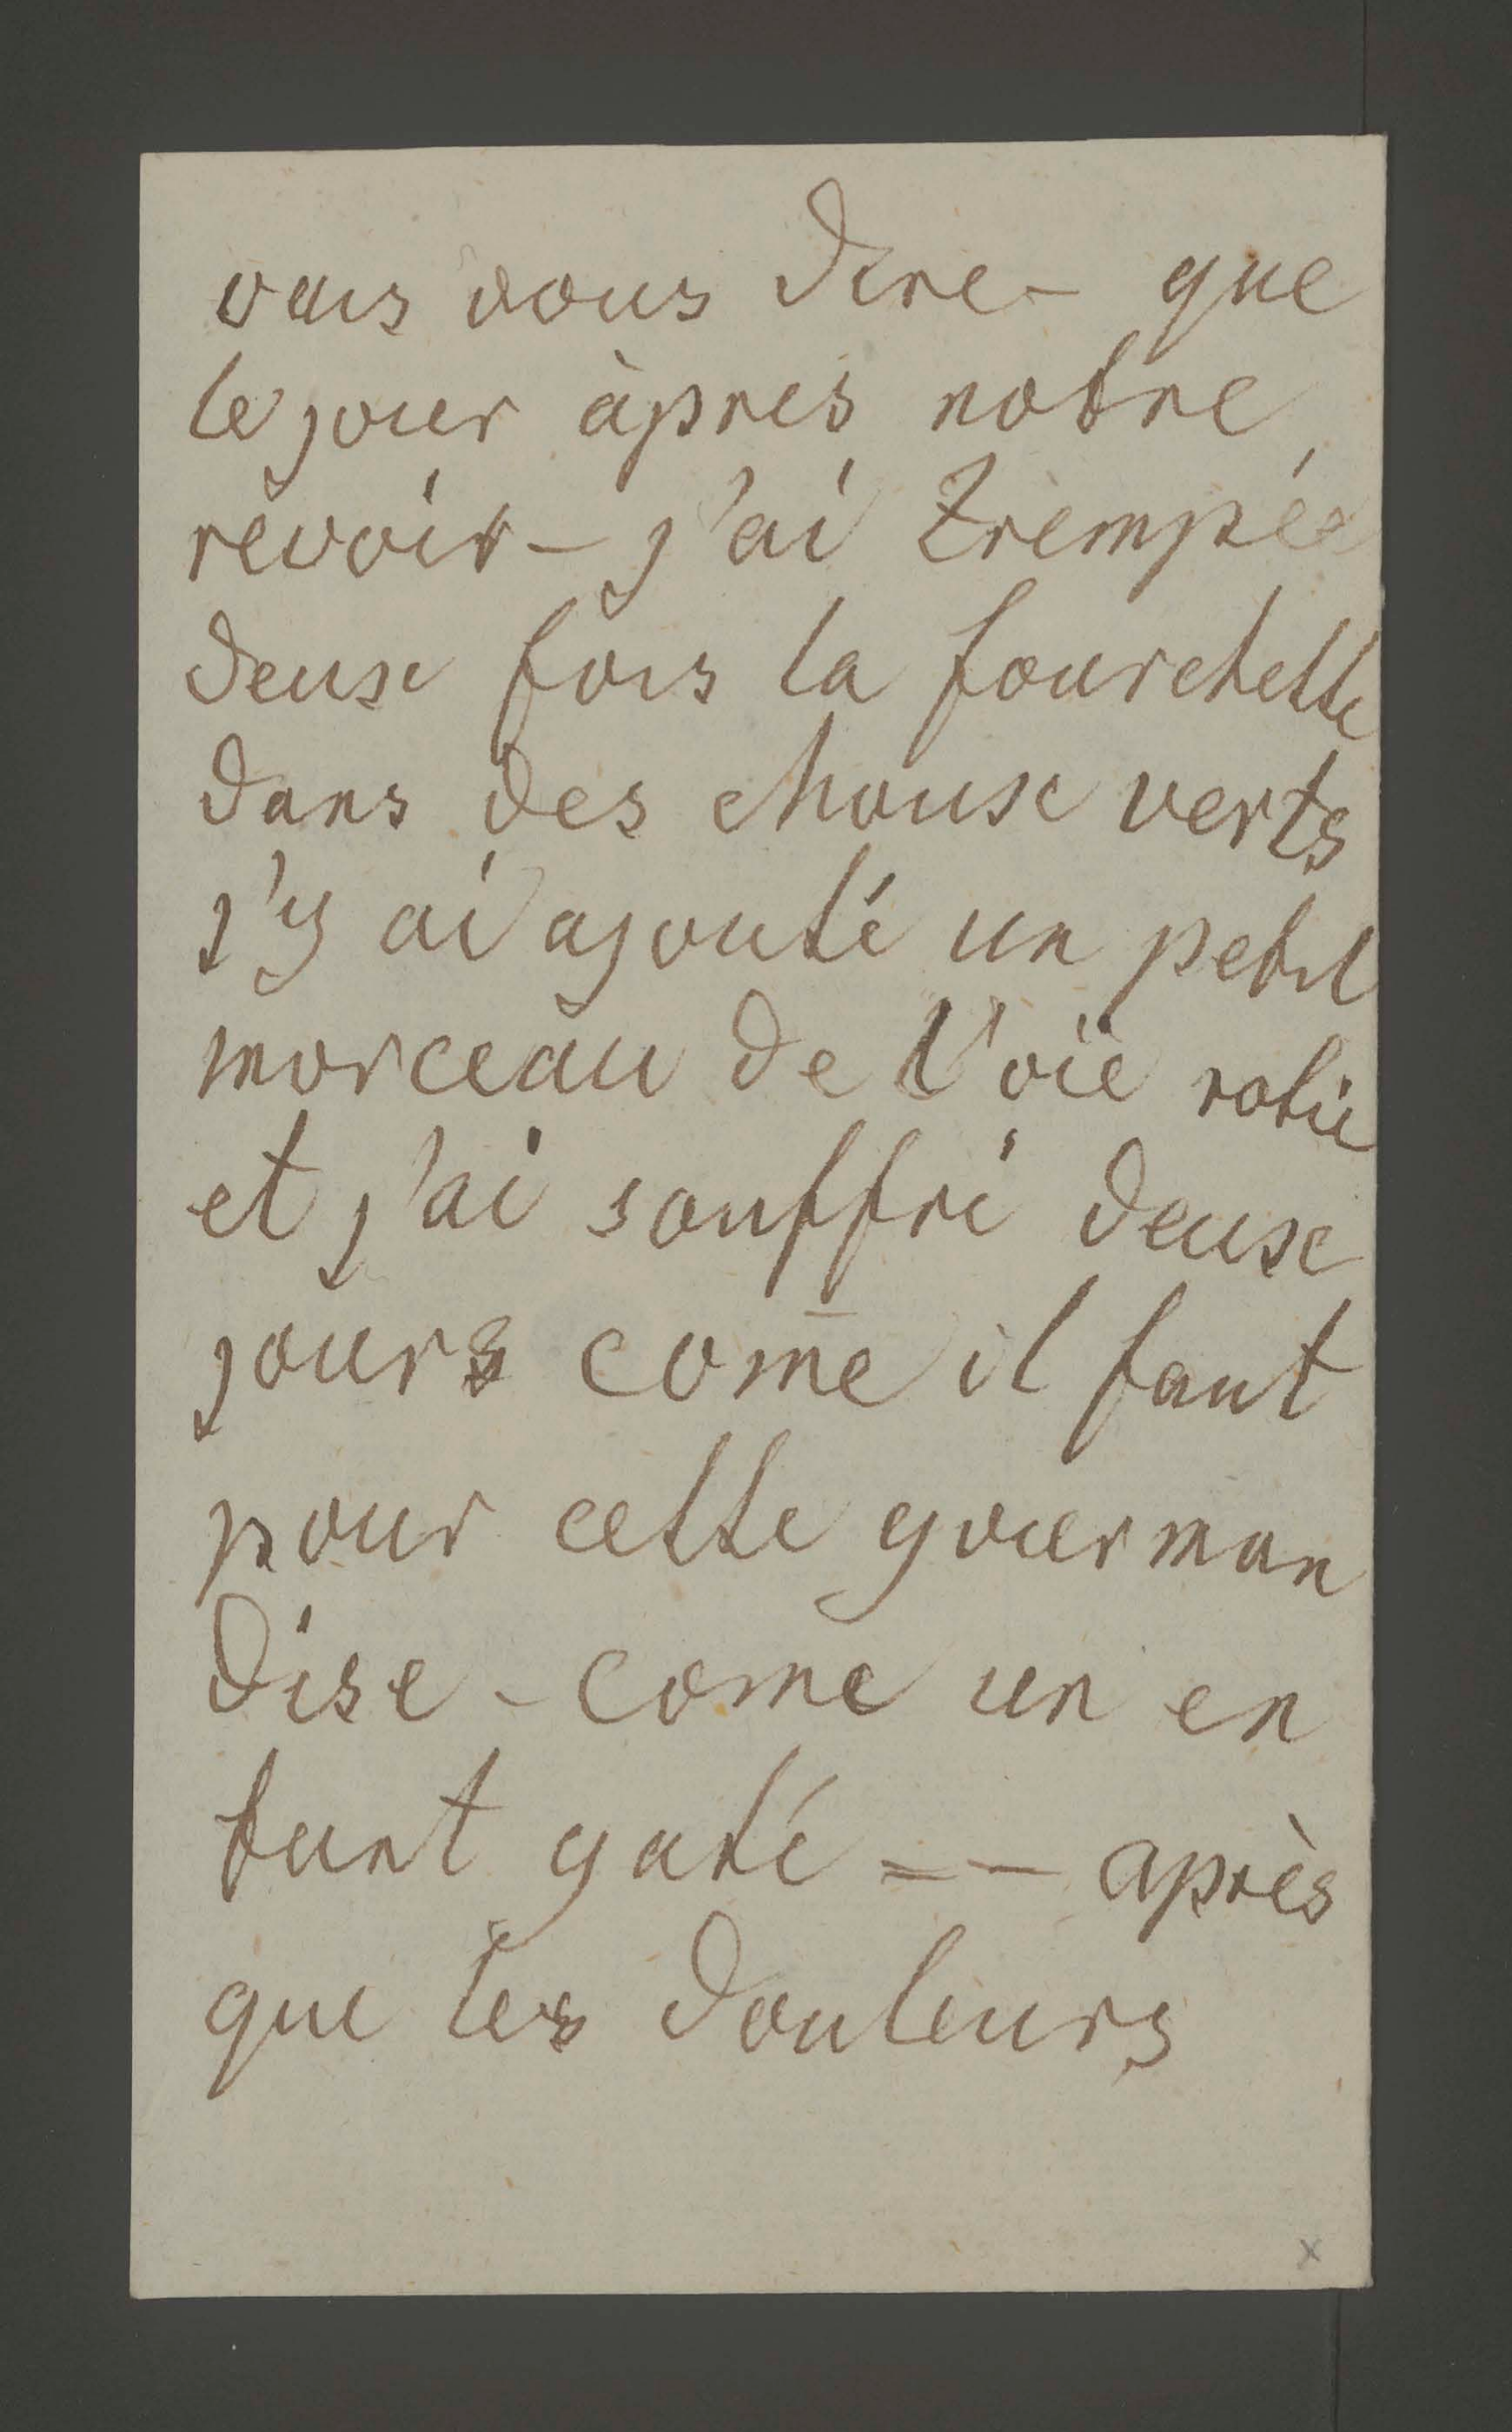 vais vous dire – que
le jour àpres notre
revoir – j'ai trempée
deux fois la fourchette
dans des choux verts
j'y ai ajouté un petit
morceau de l'oïe rotie
et j'ai souffri deux
jours com̄e il faut
pour cette gourman
dise – com̄e un en
fant gaté = – après
que les douleurs
x